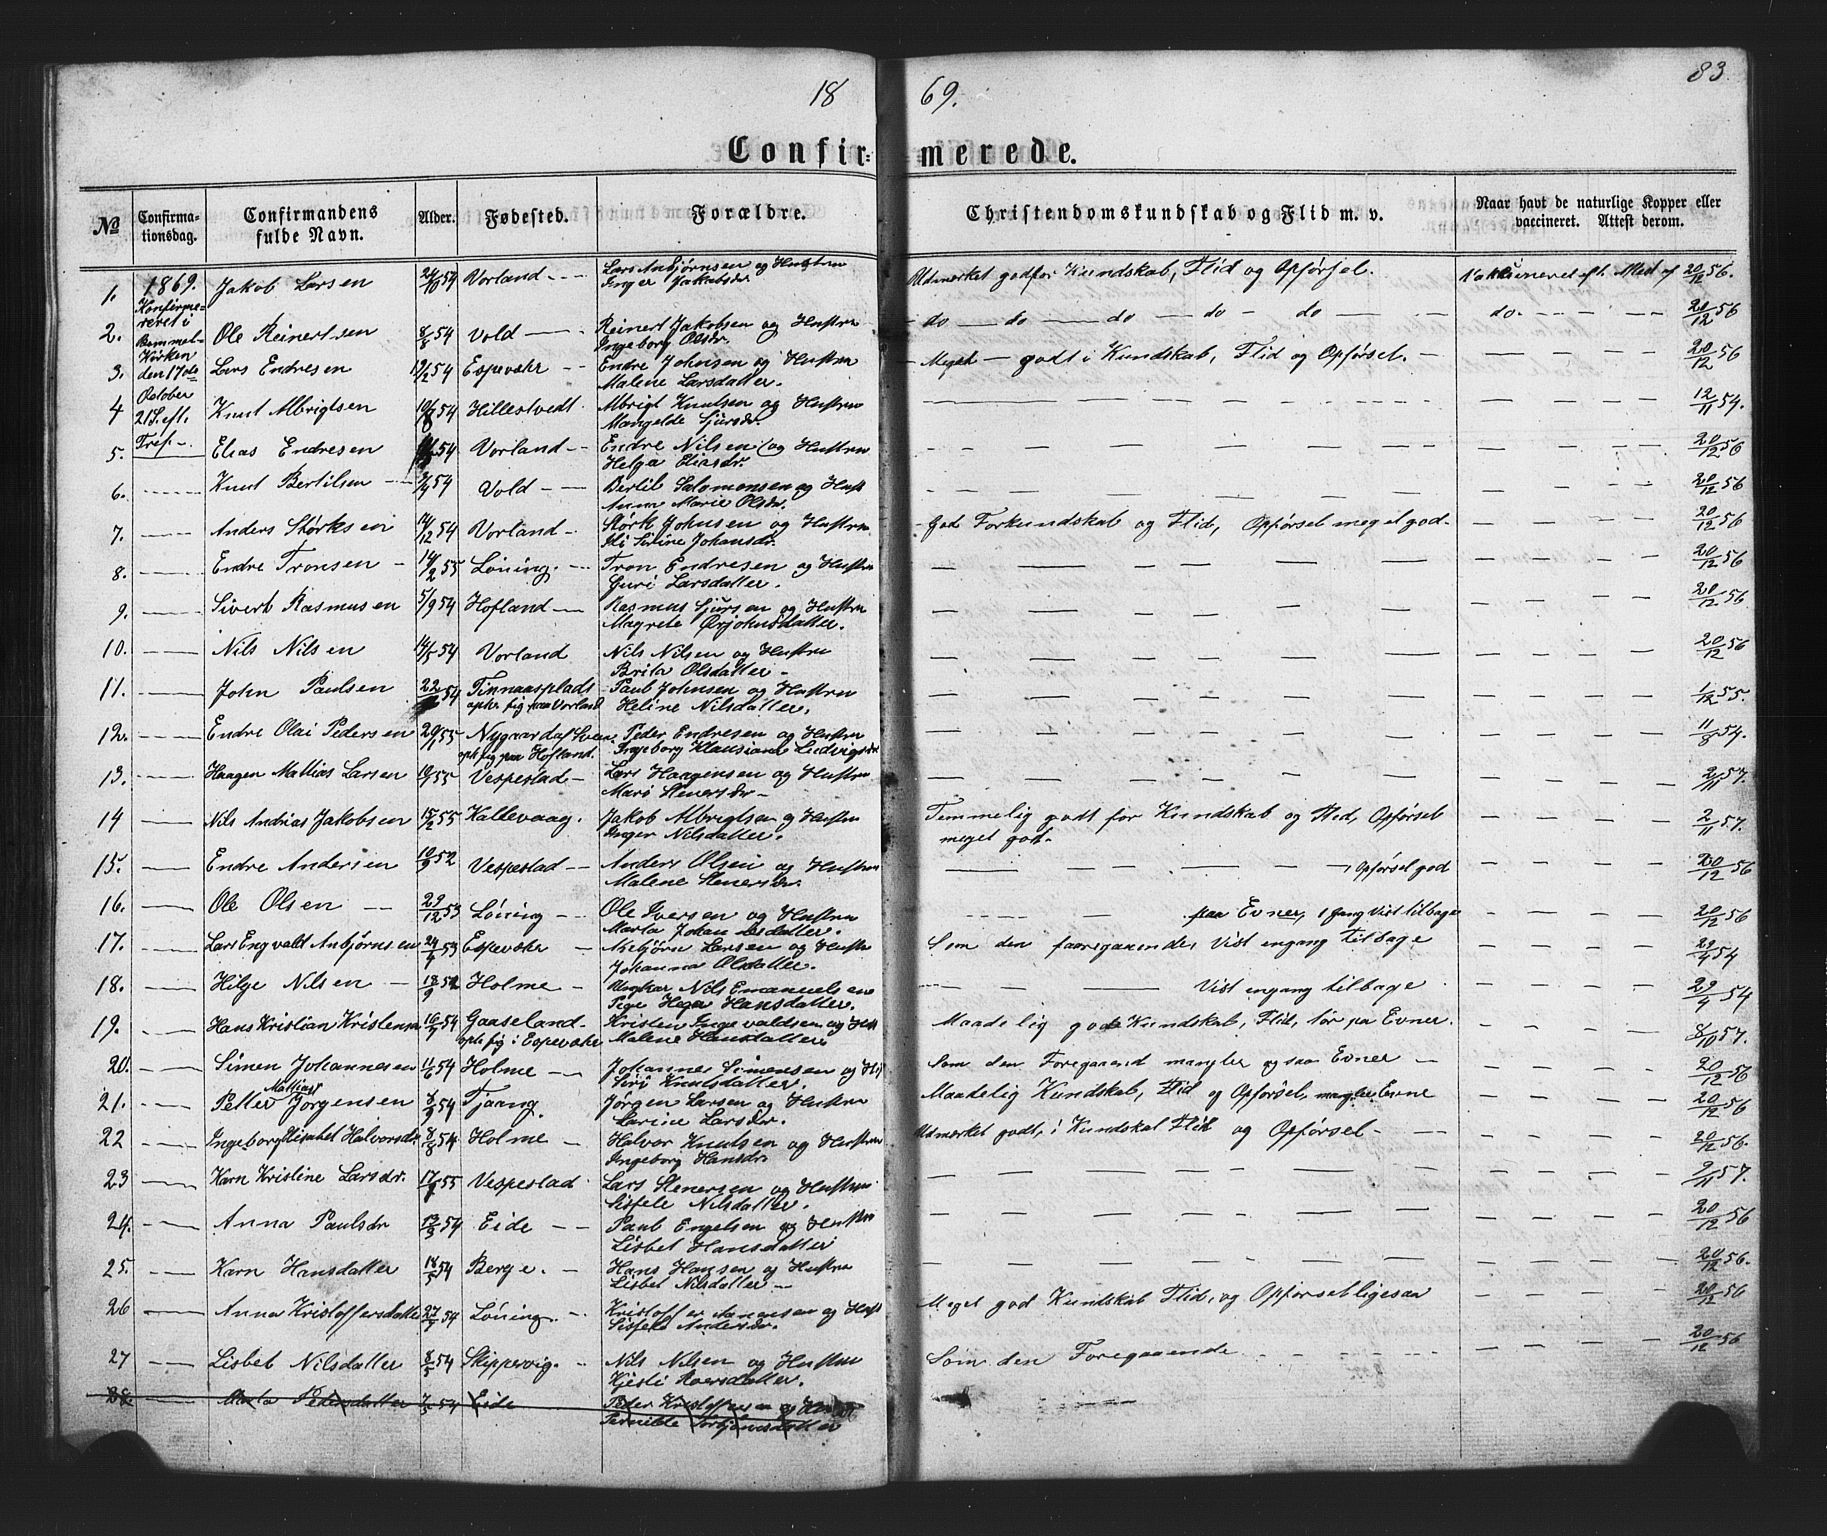 18 69. 83
Confir= =merede.
№ Confirma- tionsdag. Confirmandens fulde Navn. Alder. Fødested. Forældre. Christendomskundskab og Flid m. v. Naar havt de naturlige Kopper eller vaccineret. Attest derom.
1869. Konfirme- reret i Bømmel- Kirken den 17de October 21 S. eft. Tref.
1. Jakob Larsen 24/10 54 Vorland Lars Anbjørnsen og Hustru Udmærket godt for Kundskab, Flid og Opførsel. Vakkcineret eft. Attest af 20/12 56.
Inger Jakobsdr.
2. Ole Reinertsen 8/5 54 Vold Reinert Jakobsen og Hustru — do — do — do — do — do — do. 20/12 56
Ingeborg Olsdr.
3. Lars Endresen 54 Espevær Endre Johnsen og Hustru Meget godt i Kundskab, Flid og Opførsel. 20/12 56
Malene Larsdatter.
4 Knut Albrigtsen 10/8 54 Hillestvedt Albrigt Knutsen og Hustru 12/11 54.
Mangelde Sjursdr.
5. Elias Endresen 54 Vorland Endre Nilsen og Hustru 20/12 56
Helga Eliasdr.
6. Knut Bertilsen 54 Vold Bertil Salomonsen og Hust 20/12 56
Anna Marie Olsdr.
7. Anders Størksen 14/12 54 Vorland Størk Johnsen og Hustru God Forkundskab og Flid, Opførsel meget god 20/12 56
Sirine Johansdr.
8. Endre Tronsen 14/2 55 Løning. Tron Endresen og Hustru 20/12 56
Guri Larsdatter.
9. Sivert Rasmusen 5/9 54 Hofland Rasmus Sjursen og Hustru 20/12 56
Magrete Ørjohnsdatter.
10. Nils Nilsen 14/5 54 Vorland Nils Nilsen og Hustru 20/12 56
Brita Olsdatter
11. John Paulsen 54 Finnaasplads Paul Johnsen og Hustru 1/12 55.
opår. sig paa Vorland Heline Nilsdatter.
12. Endre Olai Pedersen 29/1 55 Nygaard Peder Endresen og Hustru 11/8 54.
oph. sig paa Hofland. Ingeborg Klausiane Ludvigsdr
13. Haagen Mattias Larsen 55 Vespestad Lars Haagensen og Hustru 2/11 57.
Mari Stenersdr
14 Nils Andrias Jakobsen 15/2 55 Kallevaag. Jakob Albrigtsen og Hustru Temmelig godt for Kundskab og Flid, Opførsel 2/11 57.
Inger Nilsdatter. meget godt.
15. Endre Andersen 10/9 52 Vespestad Anders Olsen og Hustru Opførsel god 20/12 56
Malene Stenersdr.
16. Ole Olsen 29/12 53 Løning Ole Iversen og Hustru paa Evner, 1 gang vist tilbage 20/12 56
Marta Johannesdatter.
17. Lars Engvald Anbjørnsen 53 Espevær Anbjørn Larsen og Hustru Som den foregaaende, vist engang tilbage 29/4 54
Johanna Olsdatter.
18. Hilge Nilsen 18/9 52 Holme Ungkar Nils Emanuelsen Vist engang tilbage 29/4 54
Pige Hega Hansdatter.
19. Hans Kristian Kristensen 54 Gaaseland Kristen Ingevaldsen og Hust Maadelig god Kundskab, Flid, tør pa Evner. 8/10 57.
oph. sig i Espevær Malene Hansdatter
20. Simen Johannesen 11/6 54 Holme Johannes Simensen og Hu Som den Foregaaend mangler ogsaa Evner 20/12 56
Siri Knutsdatter.
21. Petter Mattias Jørgensen 54 Tjaang. Jørgen Larsen og Hustru Maadelig Kundskab, Flid og Opførsel, mangler Evne 20/12 56
Larine Larsdr.
22 Ingeborg Elisabet Halvorsdr 54 Holme Halvor Knutsen og Hustru Udmærket godt, i Kundskab Flid og Opførsel 20/12 56.
Ingeborg Hansdr.
23 Karn Kristine Larsdr. 55 Vespestad Lars Stenersen og Hustru 2/11 57.
Sisfele Nilsdatter.
24. Anna Paulsdr 54 Eide Paul Engelsen og Hustru 20/12 56
Lisbet Hansdatter
25. Karn Hansdatter 18/5 54 Berge. Hans Hansen og Hustru 20/12 56.
Lisbet Nilsdatter
26 Anna Kristoffersdatter 54 Løning Kristoffer Hansen og Hust Meget god Kundskab Flid, og Opførsel ligesaa 20/12 56
Sisfele Andersdr.
27 Lisbet Nilsdatter 8/5 54 Skippervig. Nils Nilsen og Hustru Som den Foregaaende 20/12 56
Kjesti Roersdatter.
28. Marta Pedersdatter 54 Eide Peder Kristoffersen og Hustru
Pernille Torbjørnsdatter